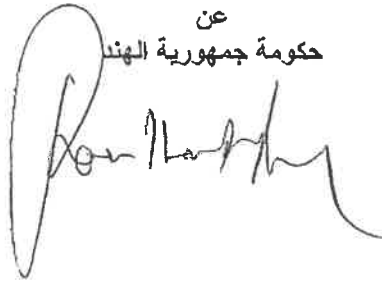 عن
حكومة جمهورية الهند